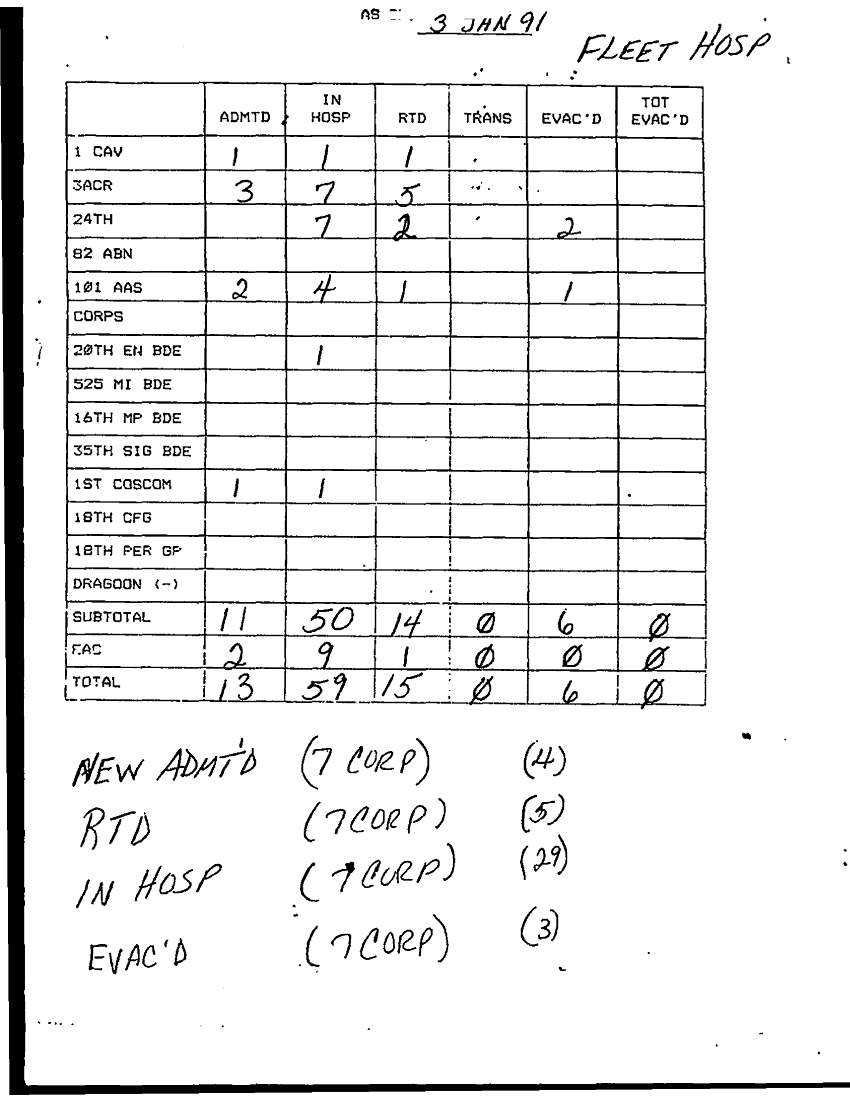 AS 3 JAN 91
FLEET HOSP
ADMTD IN HOSP RTD TRANS EVAC'D TOT EVAC'D
1 CAV 1 1 1
3ACR 3 7 5
24TH 7 2 2
82 ABN
101 AAS 2 4 1 1
CORPS
20TH EN BDE 1
525 MI BDE
16TH MP BDE
35TH SIG BDE
1ST COSCOM 1 1
18TH CFG
18TH PER GP
DRAGOON (-)
SUBTOTAL 11 50 14 0 6 0
EAC 2 9 1 0 0 0
TOTAL 13 59 15 0 6 0
NEW ADMT'D (7 CORP) (4)
RTD (7 CORP) (5)
IN HOSP (7 CORP) (29)
EVAC'D (7 CORP) (3)